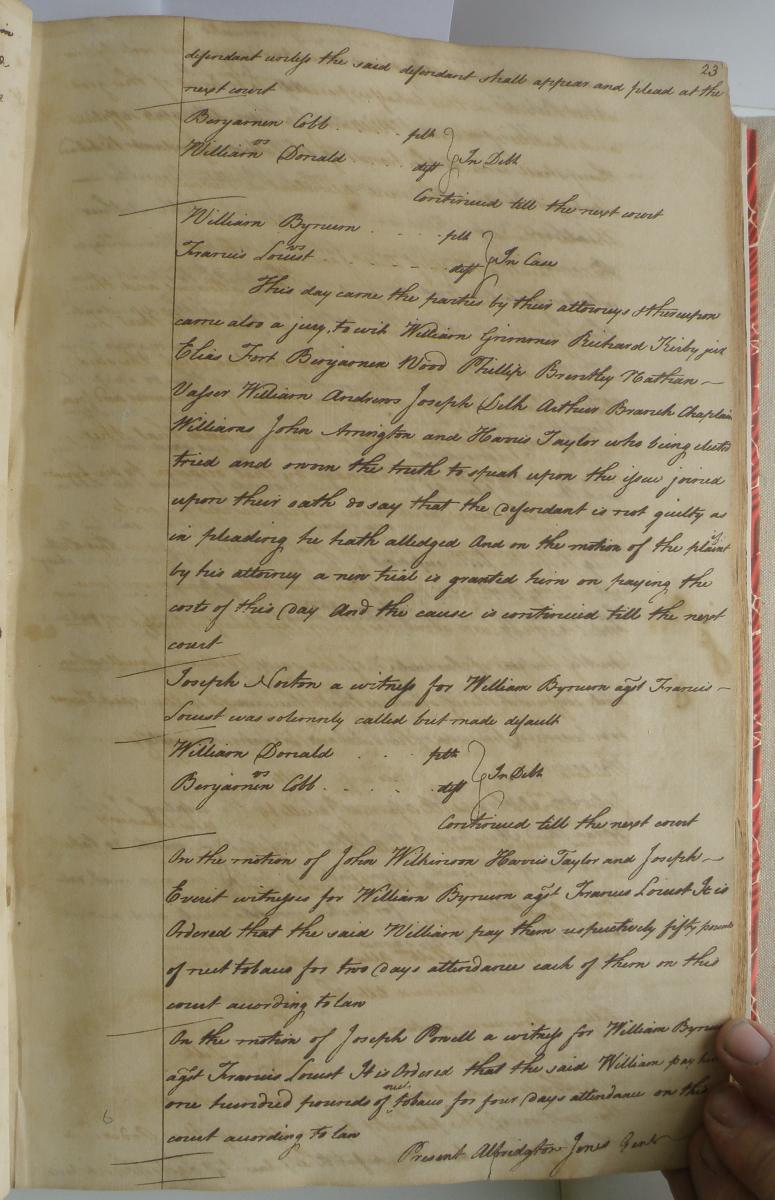 23
defendant unless the said defendant shall appear and plead at the
next court
Benjamen Cobb . . . . pltf
vs } In Debt
William Donald . . . . deft
Continued till the next court
William Byrum . . . . pltf
vs } In Case
Francis Loust . . . . deft
This day came the parties by their attorneys & thereupon
came also a jury, to wit William Grimmer Richard Kirby jur
Elias Fort Benjamen Wood Phillip Brantley Nathan
Vasser William Andrews Joseph Delk Arthur Branch Chaplain
Williams John Arrington and Harris Taylor who being elected
tried and sworn the truth to speak upon the issue joined
upon their oath do say that the defendant is not guilty as
in pleading he hath alledged And on the motion of the plaintif
by his attorney a new trial is granted him on paying the
costs of this day And the cause is continued till the next
court
Joseph Norton a witness for William Byrum agst Francis
Loust was solemnly called but made default
William Donald . . . pltf
vs } In Debt
Benjamen Cobb . . . . deft
Continued till the next court
On the motion of John Wilkinson Harris Taylor and Joseph
Everit witnesses for William Byrum agst Francis Loust It is
Ordered that the said William pay them respectively fifty pounds
of neet tobaco for two days attendance each of them on this
court acording to law
On the motion of Joseph Powell a witness for William Byrum
agst Francis Loust It is Ordered that the said William pay him
one hundred pounds of neet tobaco for four days attendance on this
court acording to law
Present Albridgton Jones Gent
6